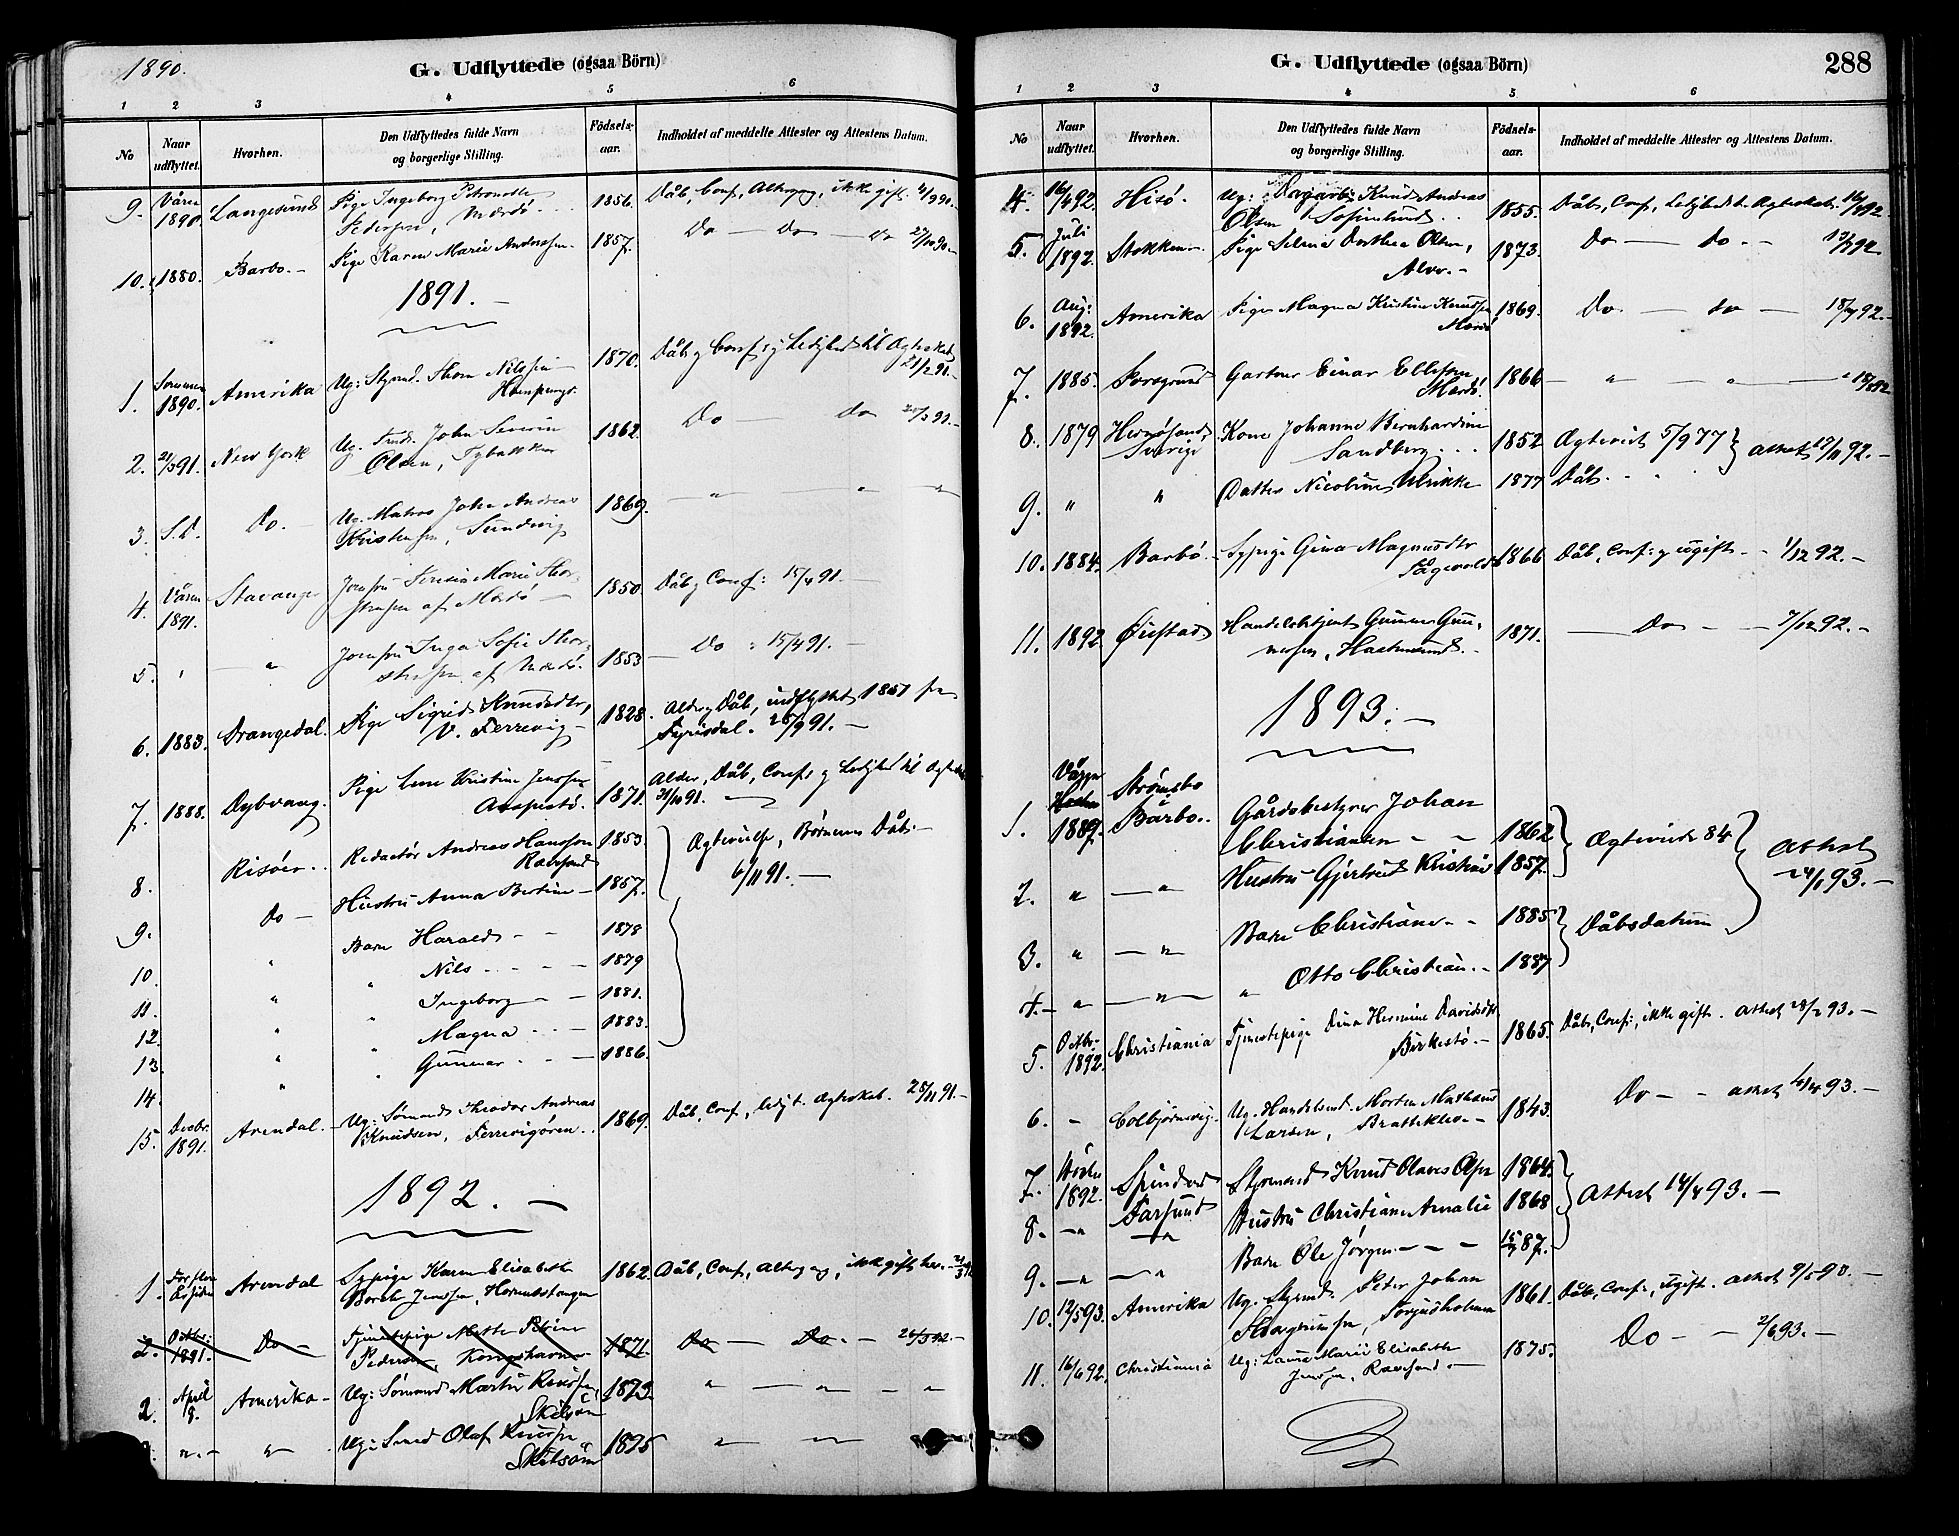 1890.
G. Udflyttede (ogsaa Börn)
1 2 3 4 5 6
No Naar udflyttet. Hvorhen. Den Udflyttedes fulde Navn og borgerlige Stilling. Födsels-aar. Indholdet af meddelte Attester og Attestens Datum.
9. Våren 1890. Langesund Pige Ingeborg Petronelle 1856. Dåb, Conf, Altergag, ikke gift.
Pedersen, Mærdö
10. 1880. Barbo. Pige Karen Marie Andreasen. 1857. Do — Do — Do 27/10 90.
1891.
1. Sommeren 1890. Amerika Ug: Styrmd. Thom Nilssen 1870. Dåb og Conf: og Ledighed til Ægteskab
2. 21/3 91. New York Ug. John Severin 1862. Do — do
Olsen, Tybakken
3. S.D. Do. Ug. Matros John Andreas 1869. — " — " "
Kristensen, Sundvig
4. Våren 1891. Stavanger Jomfru Marie Thor- 1850. Dåb og Conf: 15/4 91.
stensen af Mærdö
5. " — " Jomfru Inga Sofie Thor- 1853 Do 15/4 91.
stensen af Mærdö.
6. 1883. Drangedal. Pige Sigrid Knudsdtr, 1828. Alder og Dåb, udflyttet 1851 fra
V. Ferrevig Fyrisdal. 25/9 91.
7. 1888. Dybvaag. Pige Lene Kristine Jenssen 1871. Alder, Dåb, Conf: og Ledighed til Ægteskab
31/10 91.
8. Risöer. Redactör Andreas Hansson 1853. Ægtevielse, Börnenes Dåb.
Ravsand 6/11 91.
9. Do Hustru Anna Bertine 1857.
10. " Barn Harald 1878
11. " " Nils 1879
12. " " Ingeborg 1881.
13. " " Magna 1883.
14. " " Gunnar 1886.
15. Decbr. 1891. Arendal. Ug: Sömand Theodor Andreas 1869. Dåb, Conf, ledigt. Ægteskab. 25/11 91.
Knudsen, Ferrevigören.
1892.
1. Arendal Sypige Karen Elisabeth 1862. Dåb, Conf, Altergag, ikke gift her.
Jenssen,
2. Octbr: 1891. Do Tjenestepige Mette Petrine 1871. Do — Do. 26/3 92.
Pedersen, Kongshavn
2. April 18. Amerika Ug: Sömand Martin Knudsen, 1873. " — " — "
Skilsöm
" " Ug: Smed Olaf Knudsen 1875 " "
Skilsöm
G. Udflyttede (ogsaa Börn) 288
1 2 3 4 5 6
No Naar udflyttet. Hvorhen. Den Udflyttedes fulde Navn og borgerlige Stilling. Födsels-aar. Indholdet af meddelte Attester og Attestens Datum.
4. 16/4 92. Hisö. Ug: Knud Andreas
Olsen 1855. Dåb, Conf, Ledighed t. Ægteskab. 16/4 92.
5. Juli 1892. Stokken Pige Selma Dorthea Olsen, 1873. Do — do 13/7 92.
Alve.
6. Aug: 1892. Amerika Pige Magna Kristine Knudsen 1869. Do — do — 92.
Mærdö
7. 1885. Porsgrund Gartner Einar Ellefsen, 1866 — " — " — "
Mærdö.
8. 1879 Hernösand Sverige Kone Johanne Bernhardine 1852 Ægteviet 5/9 77 attest 92.
Sandberg
9. " " Datter Nicoline Ulrikke 1877 Dåb.
10. 1884. Barbö. Sypige Gina Magnusdtr 1866 Dåb, Conf: og ugift. 1/12 92.
11. 1892. Öiestad Handelsbetjent Gunner Gun- 1871. Do 7/12 92.
nersen,
1893.
1. 1889. Strömsbo Barbo. Gårdsbestyrer Johan
Christiansen 1862 Ægteviede 84 Attest
2. " — " Hustru Gjertrud Kristine 1857. 24/1 93.
3. " — " Barn Christiane 1885 Dåbsdatum
4. " — " " Otto Christian. 1887
5. Octbr. 1892. Christiania Tjenestepige Dina Hermine Davidsdtr 1865. Dåb, Conf:, ikke gift. Attest 28/2 93.
Birkestö.
6. - Colbjörnsvig. Ug. Handelsmd. Morten Mathias 1843. Do — attest 4/4 93.
Larsen, Brattekleiv
7. Hösten 1892. Spind ved Styrmand Knud Olaves Olsen 1864. Attest 14/4 93.
8. " Farsund Hustru Christiane Amalie 1868
9. " " Barn Ole Jörgen 87.
10. 12/5 93. Amerika Ug. Styrmd. Peter Johan 1861. Dåb, Conf:, Ugift. attest
Torjusholmen
11. 16/6 92. Christiania Ug: Laura Marie Elisabeth 1875. Do 2/6 93.
Jenssen, Ravsand.